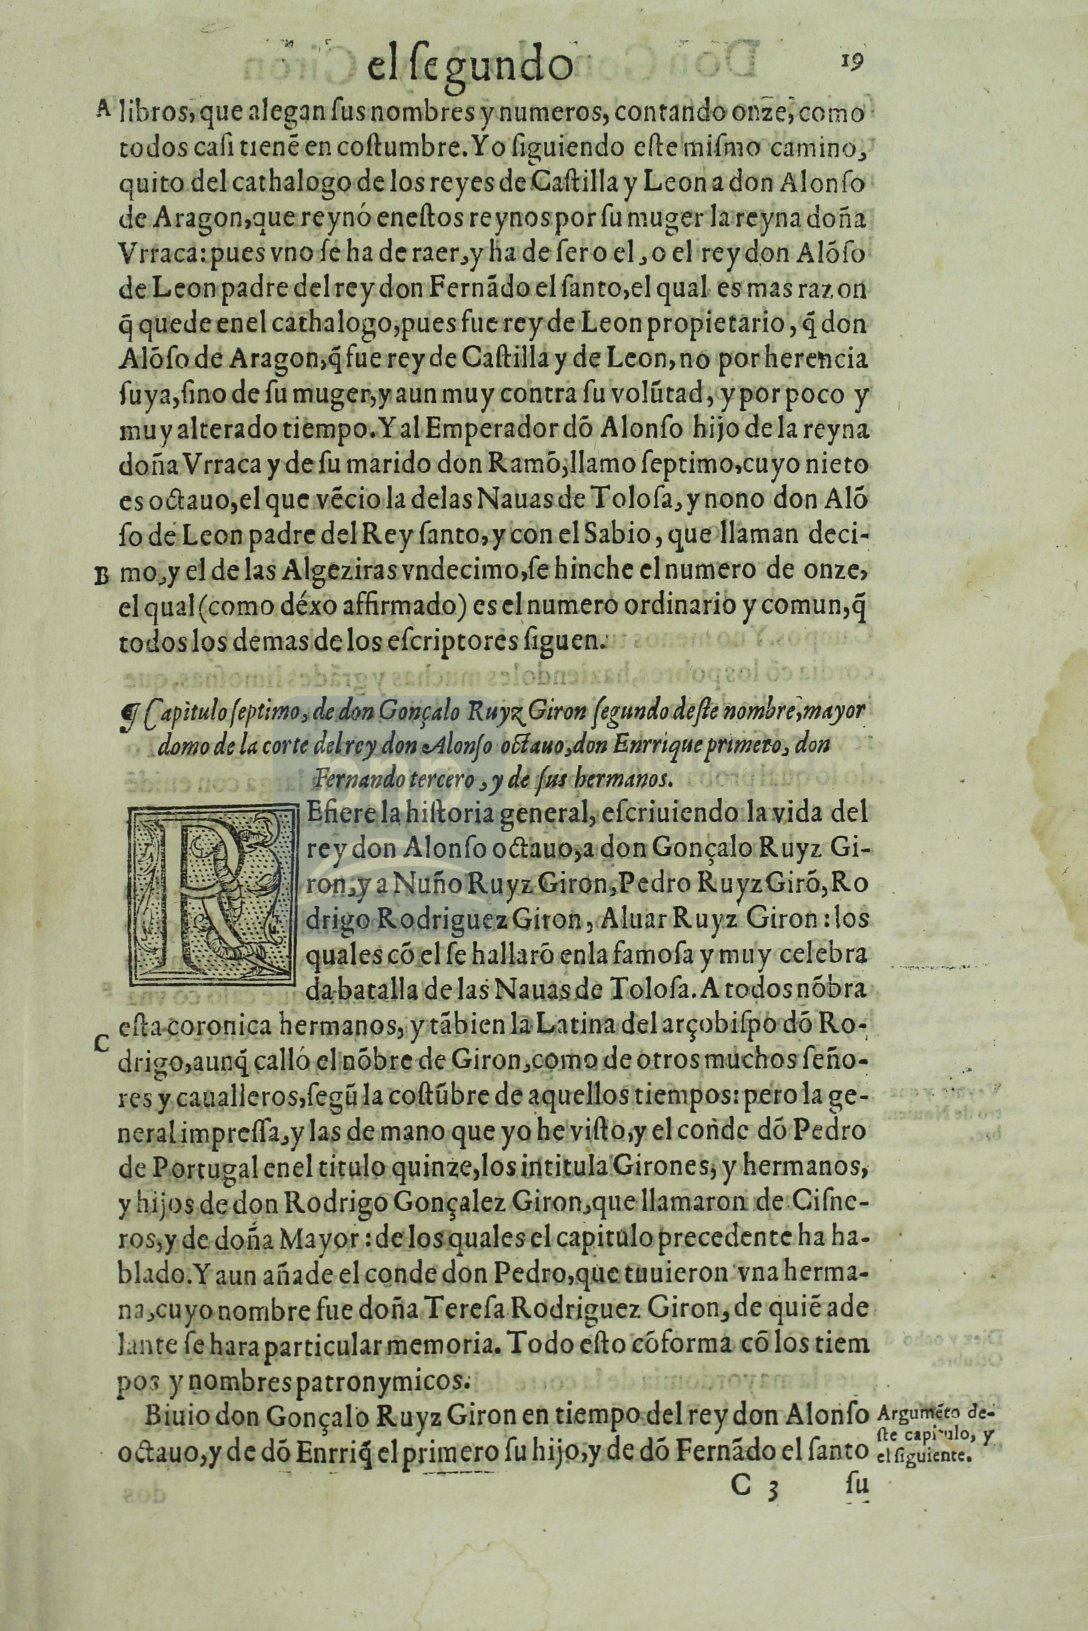 el ſegundo 19
A libros, que alegan ſus nombres y numeros, contando onze, como
todos caſi tienẽ en coſtumbre. Yo ſiguiendo eſte miſmo camino,
quito del cathalogo de los reyes de Caſtilla y Leon a don Alonſo
de Aragon, que reynó eneſtos reynos por ſu muger la reyna doña
Vrraca: pues vno ſe ha de raer, y ha de ſer o el, o el rey don Alõſo
de Leon padre del rey don Fernãdo el ſanto, el qual es mas razon
q̃ quede enel cathalogo, pues fue rey de Leon propietario, q̃ don
Alõſo de Aragon, q̃ fue rey de Caſtilla y de Leon, no por herencia
ſuya, ſino de ſu muger, y aun muy contra ſu volũtad, y por poco y
muy alterado tiempo. Y al Emperador dõ Alonſo hijo de la reyna
doña Vrraca y de ſu marido don Ramõ, llamo ſeptimo, cuyo nieto
es octauo, el que vẽcio la delas Nauas de Toloſa, y nono don Alõ
ſo de Leon padre del Rey ſanto, y con el Sabio, que llaman deci-
B mo, y el de las Algeziras vndecimo, ſe hinche el numero de onze,
el qual (como déxo affirmado) es el numero ordinario y comun, q̃
todos los demas de los eſcriptores ſiguen.
¶ Capitulo ſeptimo, de don Gonçalo Ruyz Giron ſegundo deſte nombre, mayor
domo de la corte del rey don Alonſo octauo, don Enrrique primero, don
Fernando tercero, y de ſus hermanos.
REfiere la hiſtoria general, eſcriuiendo la vida del
rey don Alonſo octauo, a don Gonçalo Ruyz Gi-
ron, y a Nuño Ruyz Giron, Pedro Ruyz Girõ, Ro
drigo Rodriguez Giron, Aluar Ruyz Giron: los
quales cõ el ſe hallarõ enla famoſa y muy celebra
da batalla de las Nauas de Toloſa. A todos nõbra
eſta coronica hermanos, y tãbien la Latina del arçobiſpo dõ Ro-
C drigo, aunq̃ calló el nõbre de Giron, como de otros muchos ſeño-
res y caualleros, ſegũ la coſtũbre de aquellos tiempos: pero la ge-
neral impreſſa, y las de mano que yo he viſto, y el conde dõ Pedro
de Portugal enel titulo quinze, los intitula Girones, y hermanos,
y hijos de don Rodrigo Gonçalez Giron, que llamaron de Ciſne-
ros, y de doña Mayor: de los quales el capitulo precedente ha ha-
blado. Y aun añade el conde don Pedro, que tuuieron vna herma-
na, cuyo nombre fue doña Tereſa Rodriguez Giron, de quiẽ ade
lante ſe hara particular memoria. Todo eſto cõforma cõ los tiem
pos y nombres patronymicos.
Biuio don Gonçalo Ruyz Giron en tiempo del rey don Alonſo
octauo, y de dõ Enrriq̃ el primero ſu hijo, y de dõ Fernãdo el ſanto
Argumẽto de-
ſte capitulo, y
el ſiguiente.
C 3 ſu